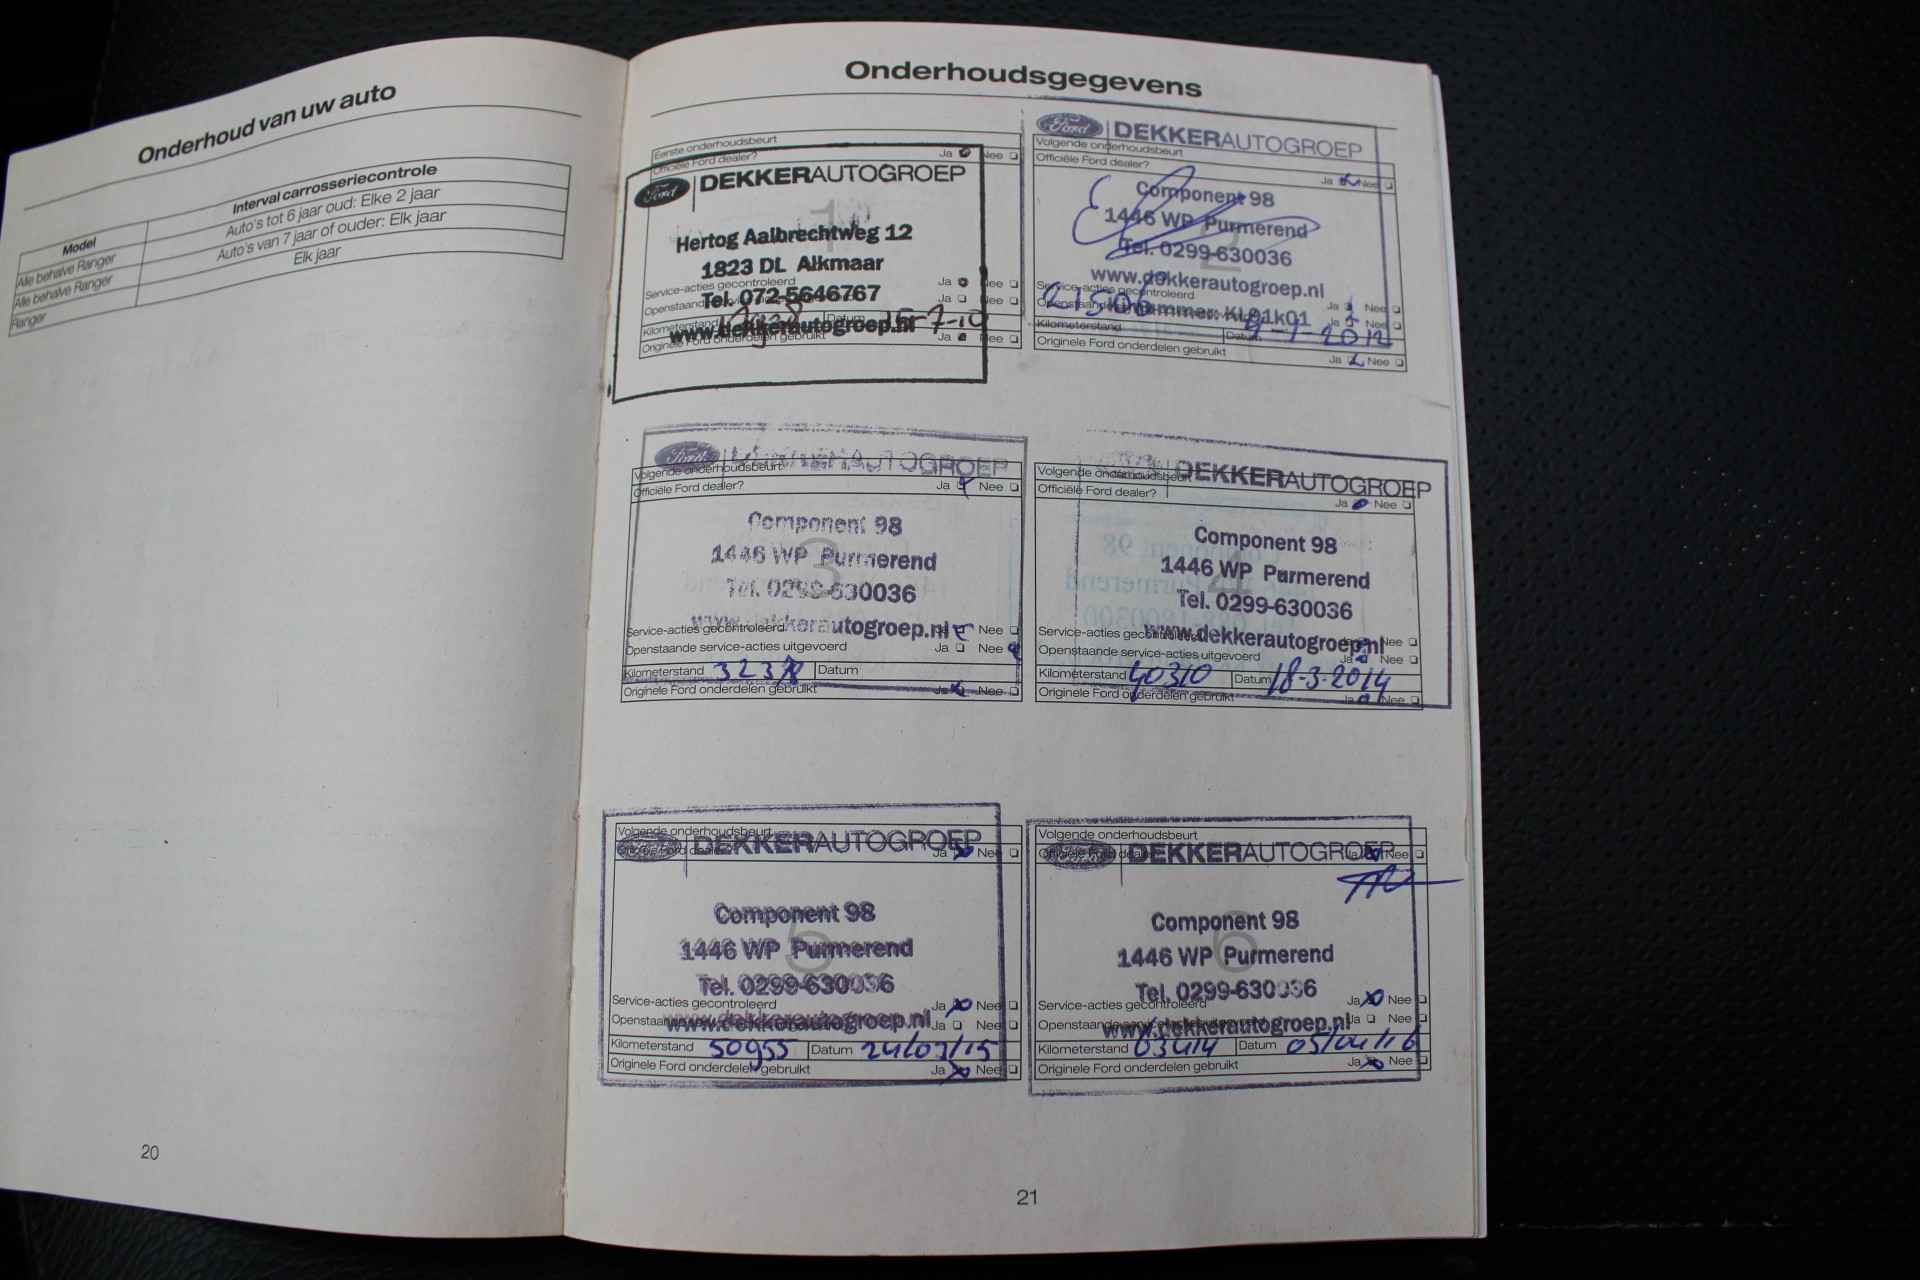 Onderhoud van uw auto
Model
Interval carrosseriecontrole
Alle behalve Ranger
Auto's tot 6 jaar oud: Elke 2 jaar
Alle behalve Ranger
Auto's van 7 jaar of ouder: Elk jaar
Ranger
Elk jaar
20
Onderhoudsgegevens
Eerste onderhoudsbeurt
Officiële Ford dealer? Ja Nee
Ford DEKKERAUTOGROEP
1
Hertog Aalbrechtweg 12
1823 DL Alkmaar
Tel. 072-5646767
www.dekkerautogroep.nl
Service-acties gecontroleerd Ja Nee
Ja Nee
Kilometerstand Datum 15-7-10
Originele Ford onderdelen gebruikt Ja Nee
Ford DEKKERAUTOGROEP
Volgende onderhoudsbeurt
Officiële Ford dealer?
Ja Nee
2
Component 98
1446 WP Purmerend
Tel. 0299-630036
www.dekkerautogroep.nl
Service-acties gecontroleerd Ja Nee
KL01k01
Ja Nee
Kilometerstand 21506 Datum
Originele Ford onderdelen gebruikt Ja Nee
Ford AUTOGROEP
Volgende onderhoudsbeurt
Officiële Ford dealer? Ja Nee
3
Component 98
1446 WP Purmerend
Tel. 0299-630036
www.dekkerautogroep.nl
Service-acties gecontroleerd Nee
Openstaande service-acties uitgevoerd Ja Nee
Kilometerstand Datum
Originele Ford onderdelen gebruikt Ja Nee
DEKKERAUTOGROEP
Volgende onderhoudsbeurt
Officiële Ford dealer?
Ja Nee
4
Component 98
1446 WP Purmerend
Tel. 0299-630036
www.dekkerautogroep.nl
Service-acties gecontroleerd Nee
Openstaande service-acties uitgevoerd Ja Nee
Kilometerstand 40310 Datum 18-3-2014
Originele Ford onderdelen gebruikt Ja Nee
Volgende onderhoudsbeurt
DEKKERAUTOGROEP
Ja Nee
5
Component 98
1446 WP Purmerend
Tel. 0299-630036
Service-acties gecontroleerd Ja Nee
www.dekkerautogroep.nl
Ja Nee
Kilometerstand 50955 Datum 24/03/15
Originele Ford onderdelen gebruikt Ja Nee
Volgende onderhoudsbeurt
DEKKERAUTOGROEP
Ja Nee
6
Component 98
1446 WP Purmerend
Tel. 0299-630036
Service-acties gecontroleerd Ja Nee
www.dekkerautogroep.nl
Ja Nee
Kilometerstand 63414 Datum 05/04/16
Originele Ford onderdelen gebruikt Ja Nee
21